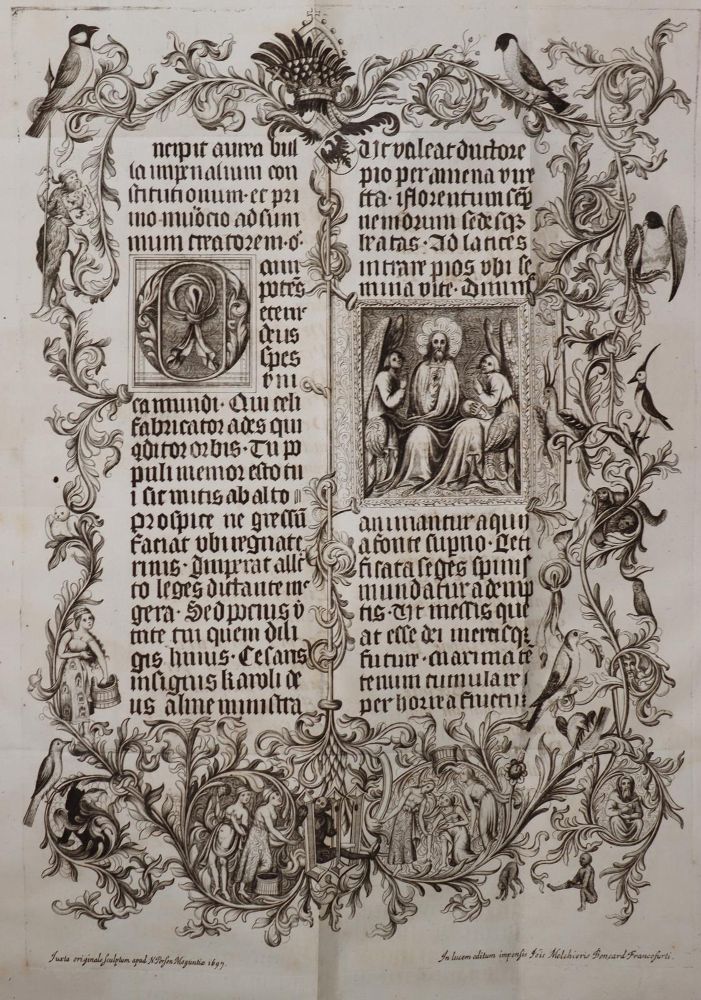 ncipit aurea bul
la imperialium con
stitutionum· et pri
mo inuocio ad sum
mum creatorem·
Omni
potēs
etern
deus
spes
vni
ca mundi· Qui celi
fabricator ades qui
qditor orbis· Tu pp
puli memor esto tu
i sic mitis ab alto
Prospice ne gressū
faciat vbi regnat e
rinis· Imperat allc
to leges dictante m
gera· Sed pocius v
tute tui quem dili
gis huius· Cesaris
insignis karoli de
us alme ministra
Ut valeat ductore
pio per amena vire
cta· florentum
nemorum sedesqȝ
beatas· Ad latices
intrare pios vbi se
mina vite· Diuinis
animantur aquis
a fonte supno· Leti
ficata seges spinis
mundatur ademp
tis· Ut messis que
at esse dei mercisqȝ
future· maxima cē
tenum cumulare
per horrea fructum
Juxta originale sculptum apud N. Person Moguntiæ 1697.
In lucem editum impensis Jois Melchioris Bencard Francofurti.